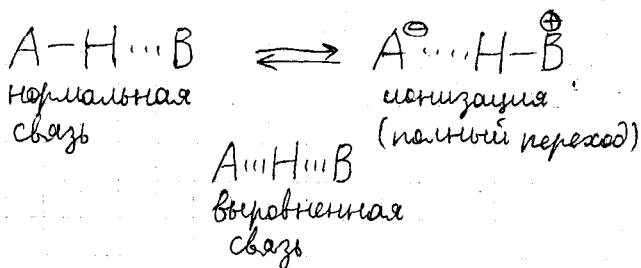 A—H···B ⇌ A⊖····H—B⊕
нормальная
связь
ионизация
(полный переход)
A···H···B
выровненная
связь